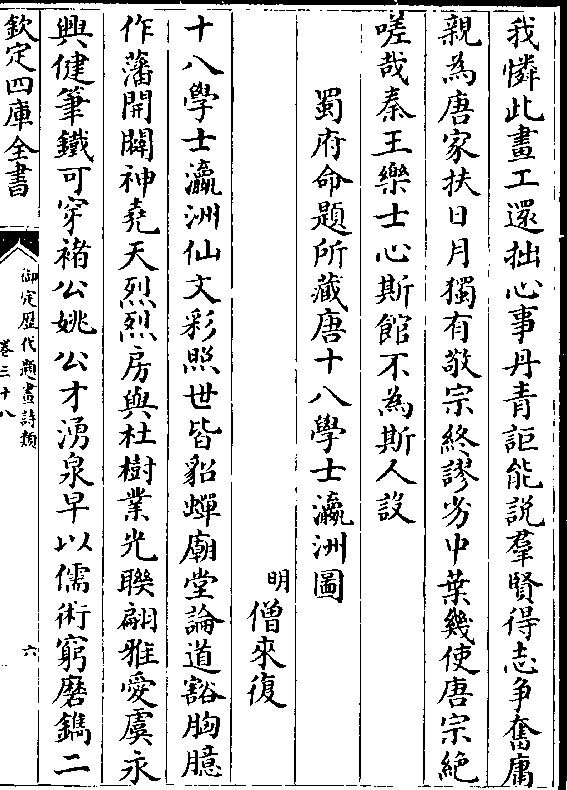 我憐此畫工還拙心事丹青詎能説羣賢得志争奮庸
親為唐家扶日月獨有敬宗終謬劣中葉幾使唐宗絶
嗟哉秦王樂士心斯館不為斯人設
蜀府命題所藏唐十八學士瀛洲圖
明僧來復
十八學士瀛洲仙文彩照世皆貂蟬廟堂論道豁胸臆
作藩開闢神堯天烈烈房與杜樹業光聯翩雅愛虞永
興健筆鐵可穿褚公姚公才湧泉早以儒術窮磨鐫二
欽定四庫全書
御定歷代題畫詩類
卷三十八
六